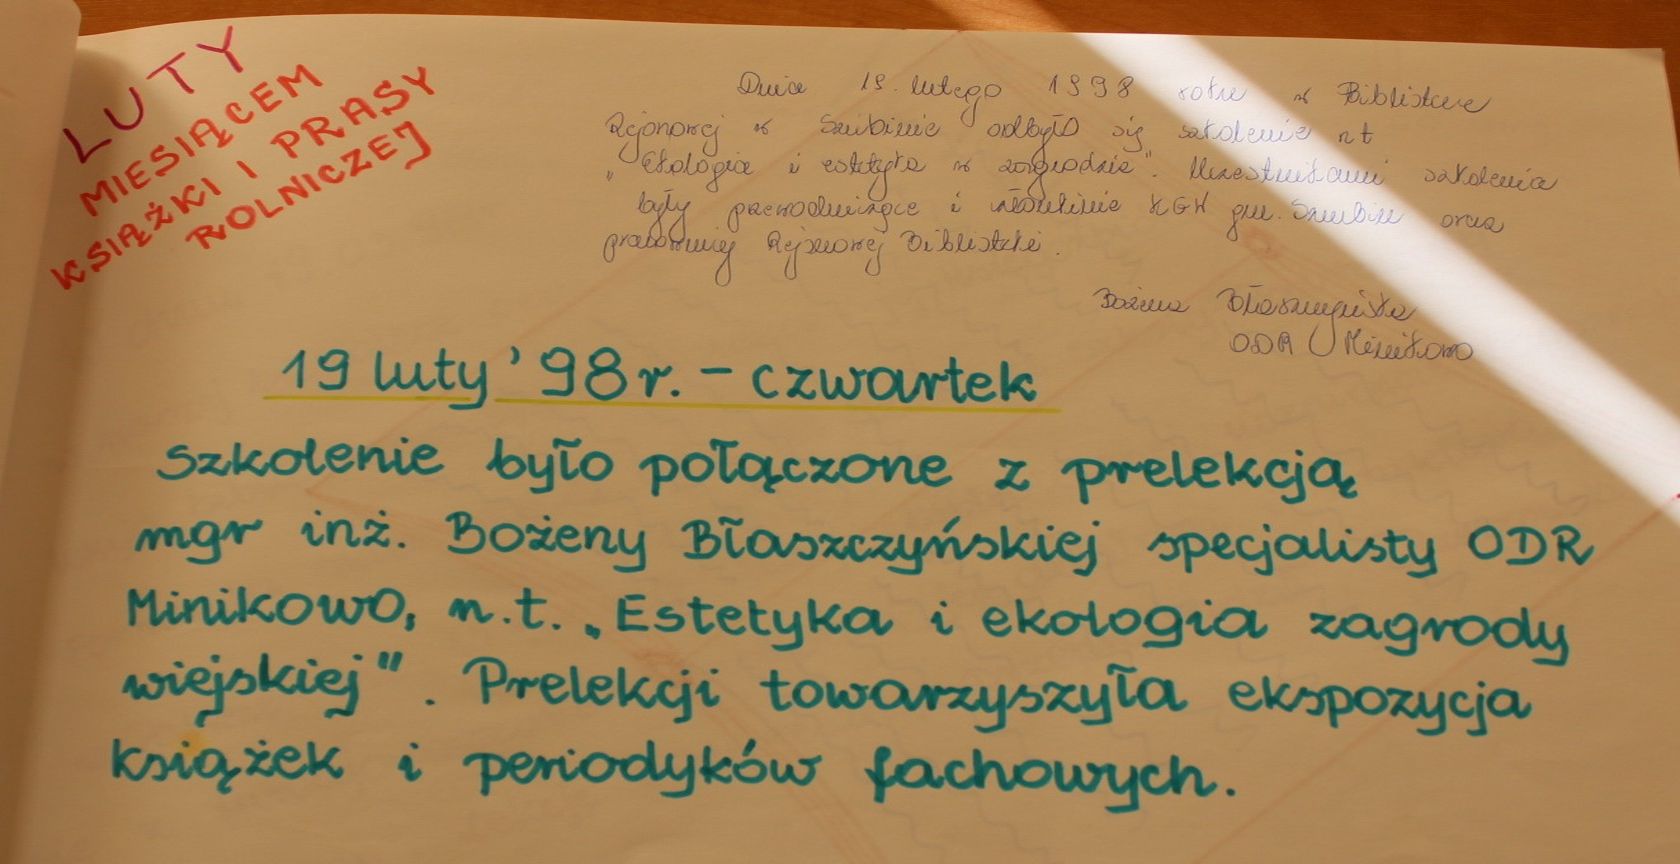 LUTY
MIESIĄCEM
KSIĄŻKI I PRASY
ROLNICZEJ
Dnia 19. lutego 1998 roku w Bibliotece
Rejonowej w Szubinie odbyło się szkolenie nt
„Ekologia i estetyka w zagrodzie". Uczestnikami szkolenia
były przewodniczące i członkinie KGW gm. Szubin oraz
pracownicy Rejonowej Biblioteki.
Bożena Błaszczyńska
ODR Minikowo
19 luty '98 r. - czwartek
Szkolenie było połączone z prelekcją
mgr inż. Bożeny Błaszczyńskiej specjalisty ODR
Minikowo, n.t. „Estetyka i ekologia zagrody
wiejskiej". Prelekcji towarzyszyła ekspozycja
książek i periodyków fachowych.